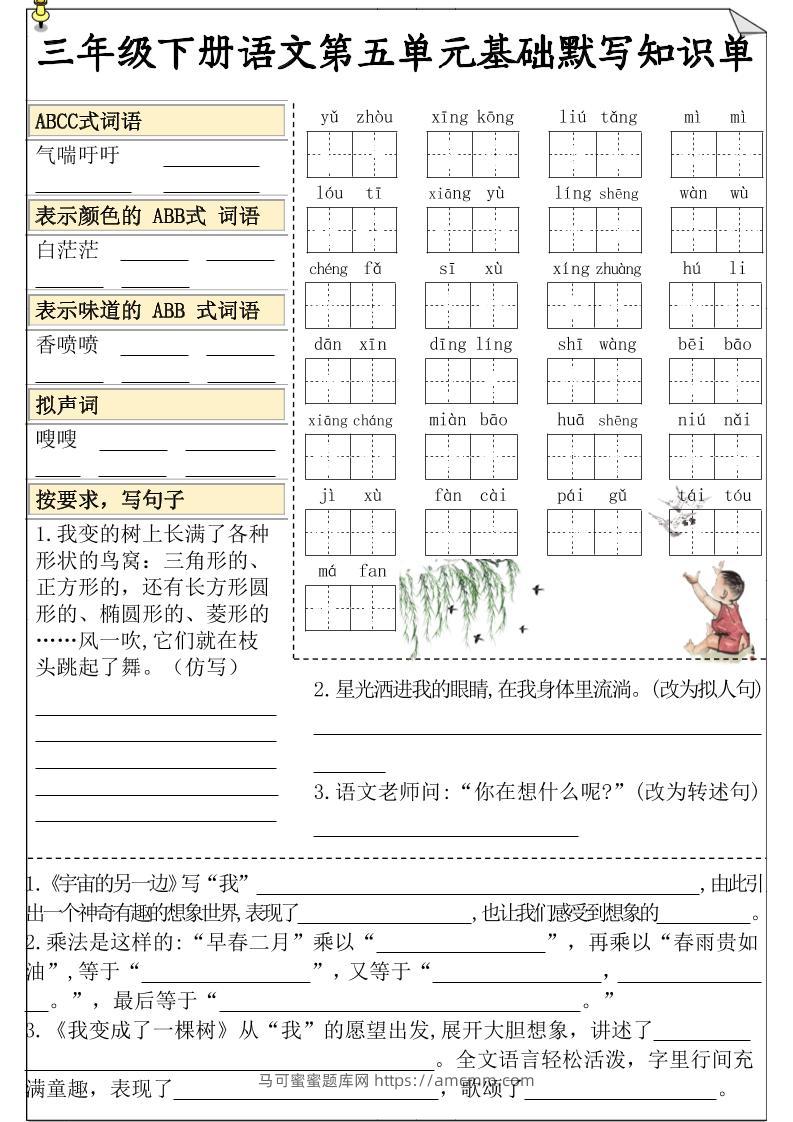 三年级下册语文第五单元基础默写知识单
ABCC式词语
气喘吁吁
表示颜色的 ABB式 词语
白茫茫
表示味道的 ABB 式词语
香喷喷
拟声词
嗖嗖
按要求，写句子
1.我变的树上长满了各种
形状的鸟窝：三角形的、
正方形的，还有长方形圆
形的、椭圆形的、菱形的
……风一吹,它们就在枝
头跳起了舞。（仿写）
yǔ zhòu xīng kōng liú tǎng mì mì
lóu tī xiāng yù líng shēng wàn wù
chéng fǎ sī xù xíng zhuàng hú li
dān xīn dīng líng shī wàng bēi bāo
xiāng cháng miàn bāo huā shēng niú nǎi
jì xù fàn cài pái gǔ tái tóu
má fan
2.星光洒进我的眼睛,在我身体里流淌。(改为拟人句)
3.语文老师问:“你在想什么呢?”(改为转述句)
1.《宇宙的另一边》写“我”____,由此引
出一个神奇有趣的想象世界,表现了____,也让我们感受到想象的____。
2.乘法是这样的:“早春二月”乘以“____”，再乘以“春雨贵如
油”,等于“____”,又等于“____,____
__。”，最后等于“____。”
3.《我变成了一棵树》从“我”的愿望出发,展开大胆想象，讲述了____
____。全文语言轻松活泼，字里行间充
满童趣，表现了____,歌颂了____。
马可蜜蜜题库网 https://amcmm.com